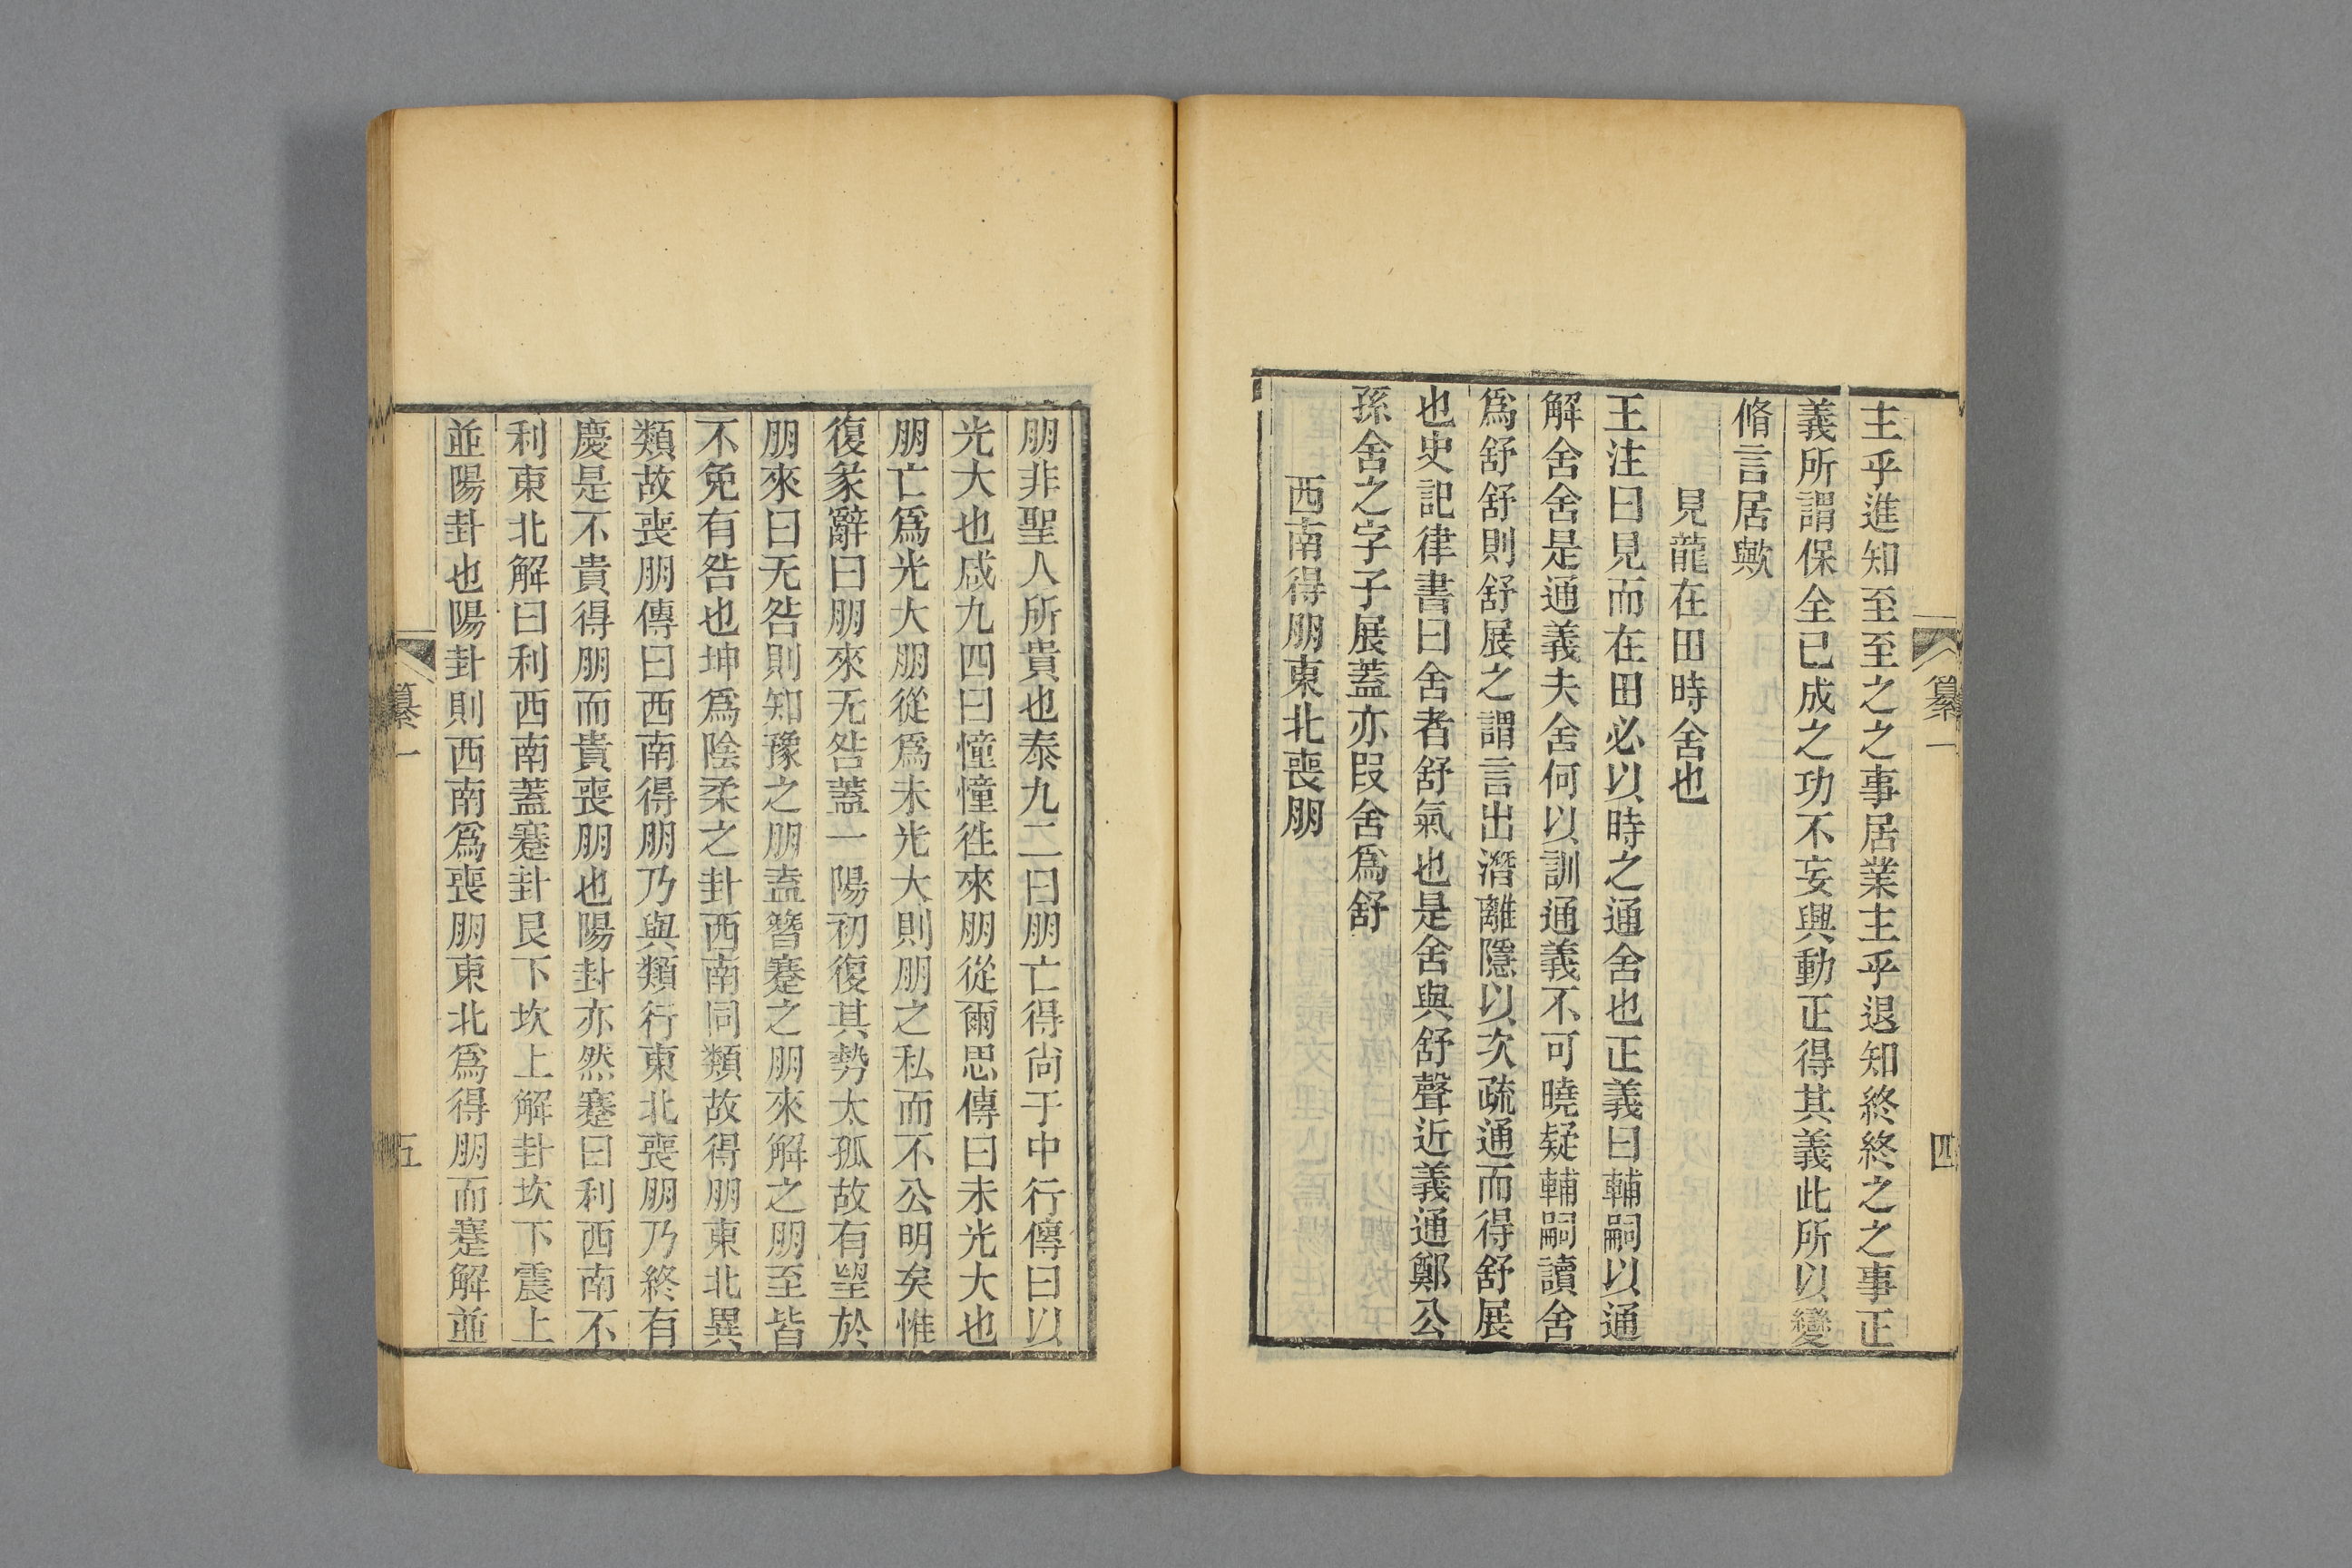 纂一
四
主乎進知至至之之事居業主乎退知終終之之事正
義所謂保全已成之功不妄興動正得其義此所以變
脩言居歟
見龍在田時舍也
王注曰見而在田必以時之通舍也正義曰輔嗣以通
解舍舍是通義夫舍何以訓通義不可曉疑輔嗣讀舍
爲舒舒則舒展之謂言出潛離隱以次疏通而得舒展
也史記律書曰舍者舒氣也是舍與舒聲近義通鄭公
孫舍之字子展蓋亦叚舍爲舒
西南得朋東北喪朋
朋非聖人所貴也泰九二曰朋亡得尙于中行傳曰以
光大也咸九四曰憧憧徃來朋從爾思傳曰未光大也
朋亡爲光大朋從爲未光大則朋之私而不公明矣惟
復彖辭曰朋來无咎蓋一陽初復其勢太孤故有朢於
朋來曰无咎則知豫之朋盍簪蹇之朋來解之朋至皆
不免有咎也坤爲陰柔之卦西南同類故得朋東北異
類故喪朋傳曰西南得朋乃與類行東北喪朋乃終有
慶是不貴得朋而貴喪朋也陽卦亦然蹇曰利西南不
利東北解曰利西南蓋蹇卦艮下坎上解卦坎下震上
並陽卦也陽卦則西南爲喪朋東北爲得朋而蹇解並
纂一
五